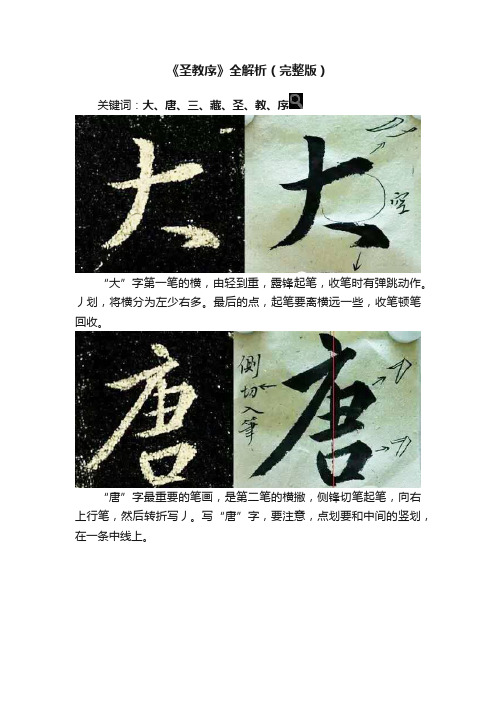 《圣教序》全解析（完整版）
关键词：大、唐、三、藏、圣、教、序
大
大
空
“大”字第一笔的横，由轻到重，露锋起笔，收笔时有弹跳动作。
丿划，将横分为左少右多。最后的点，起笔要离横远一些，收笔顿笔
回收。
唐
侧切入筆
唐
“唐”字最重要的笔画，是第二笔的横撇，侧锋切笔起笔，向右
上行笔，然后转折写丿。写“唐”字，要注意，点划要和中间的竖划，
在一条中线上。